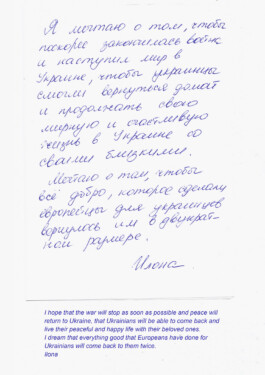 Я мечтаю о том, чтобы
поскорее закончилась война
и наступил мир в
Украине, чтобы украинцы
смогли вернуться домой
и продолжать свою
мирную и счастливую
жизнь в Украине со
своими близкими.
Мечтаю о том, чтобы
всё добро, которое сделали
европейцы для украинцев
вернулось им в двукрат-
ном размере.
Илона
I hope that the war will stop as soon as possible and peace will
return to Ukraine, that Ukrainians will be able to come back and
live their peaceful and happy life with their beloved ones.
I dream that everything good that Europeans have done for
Ukrainians will come back to them twice.
Ilona